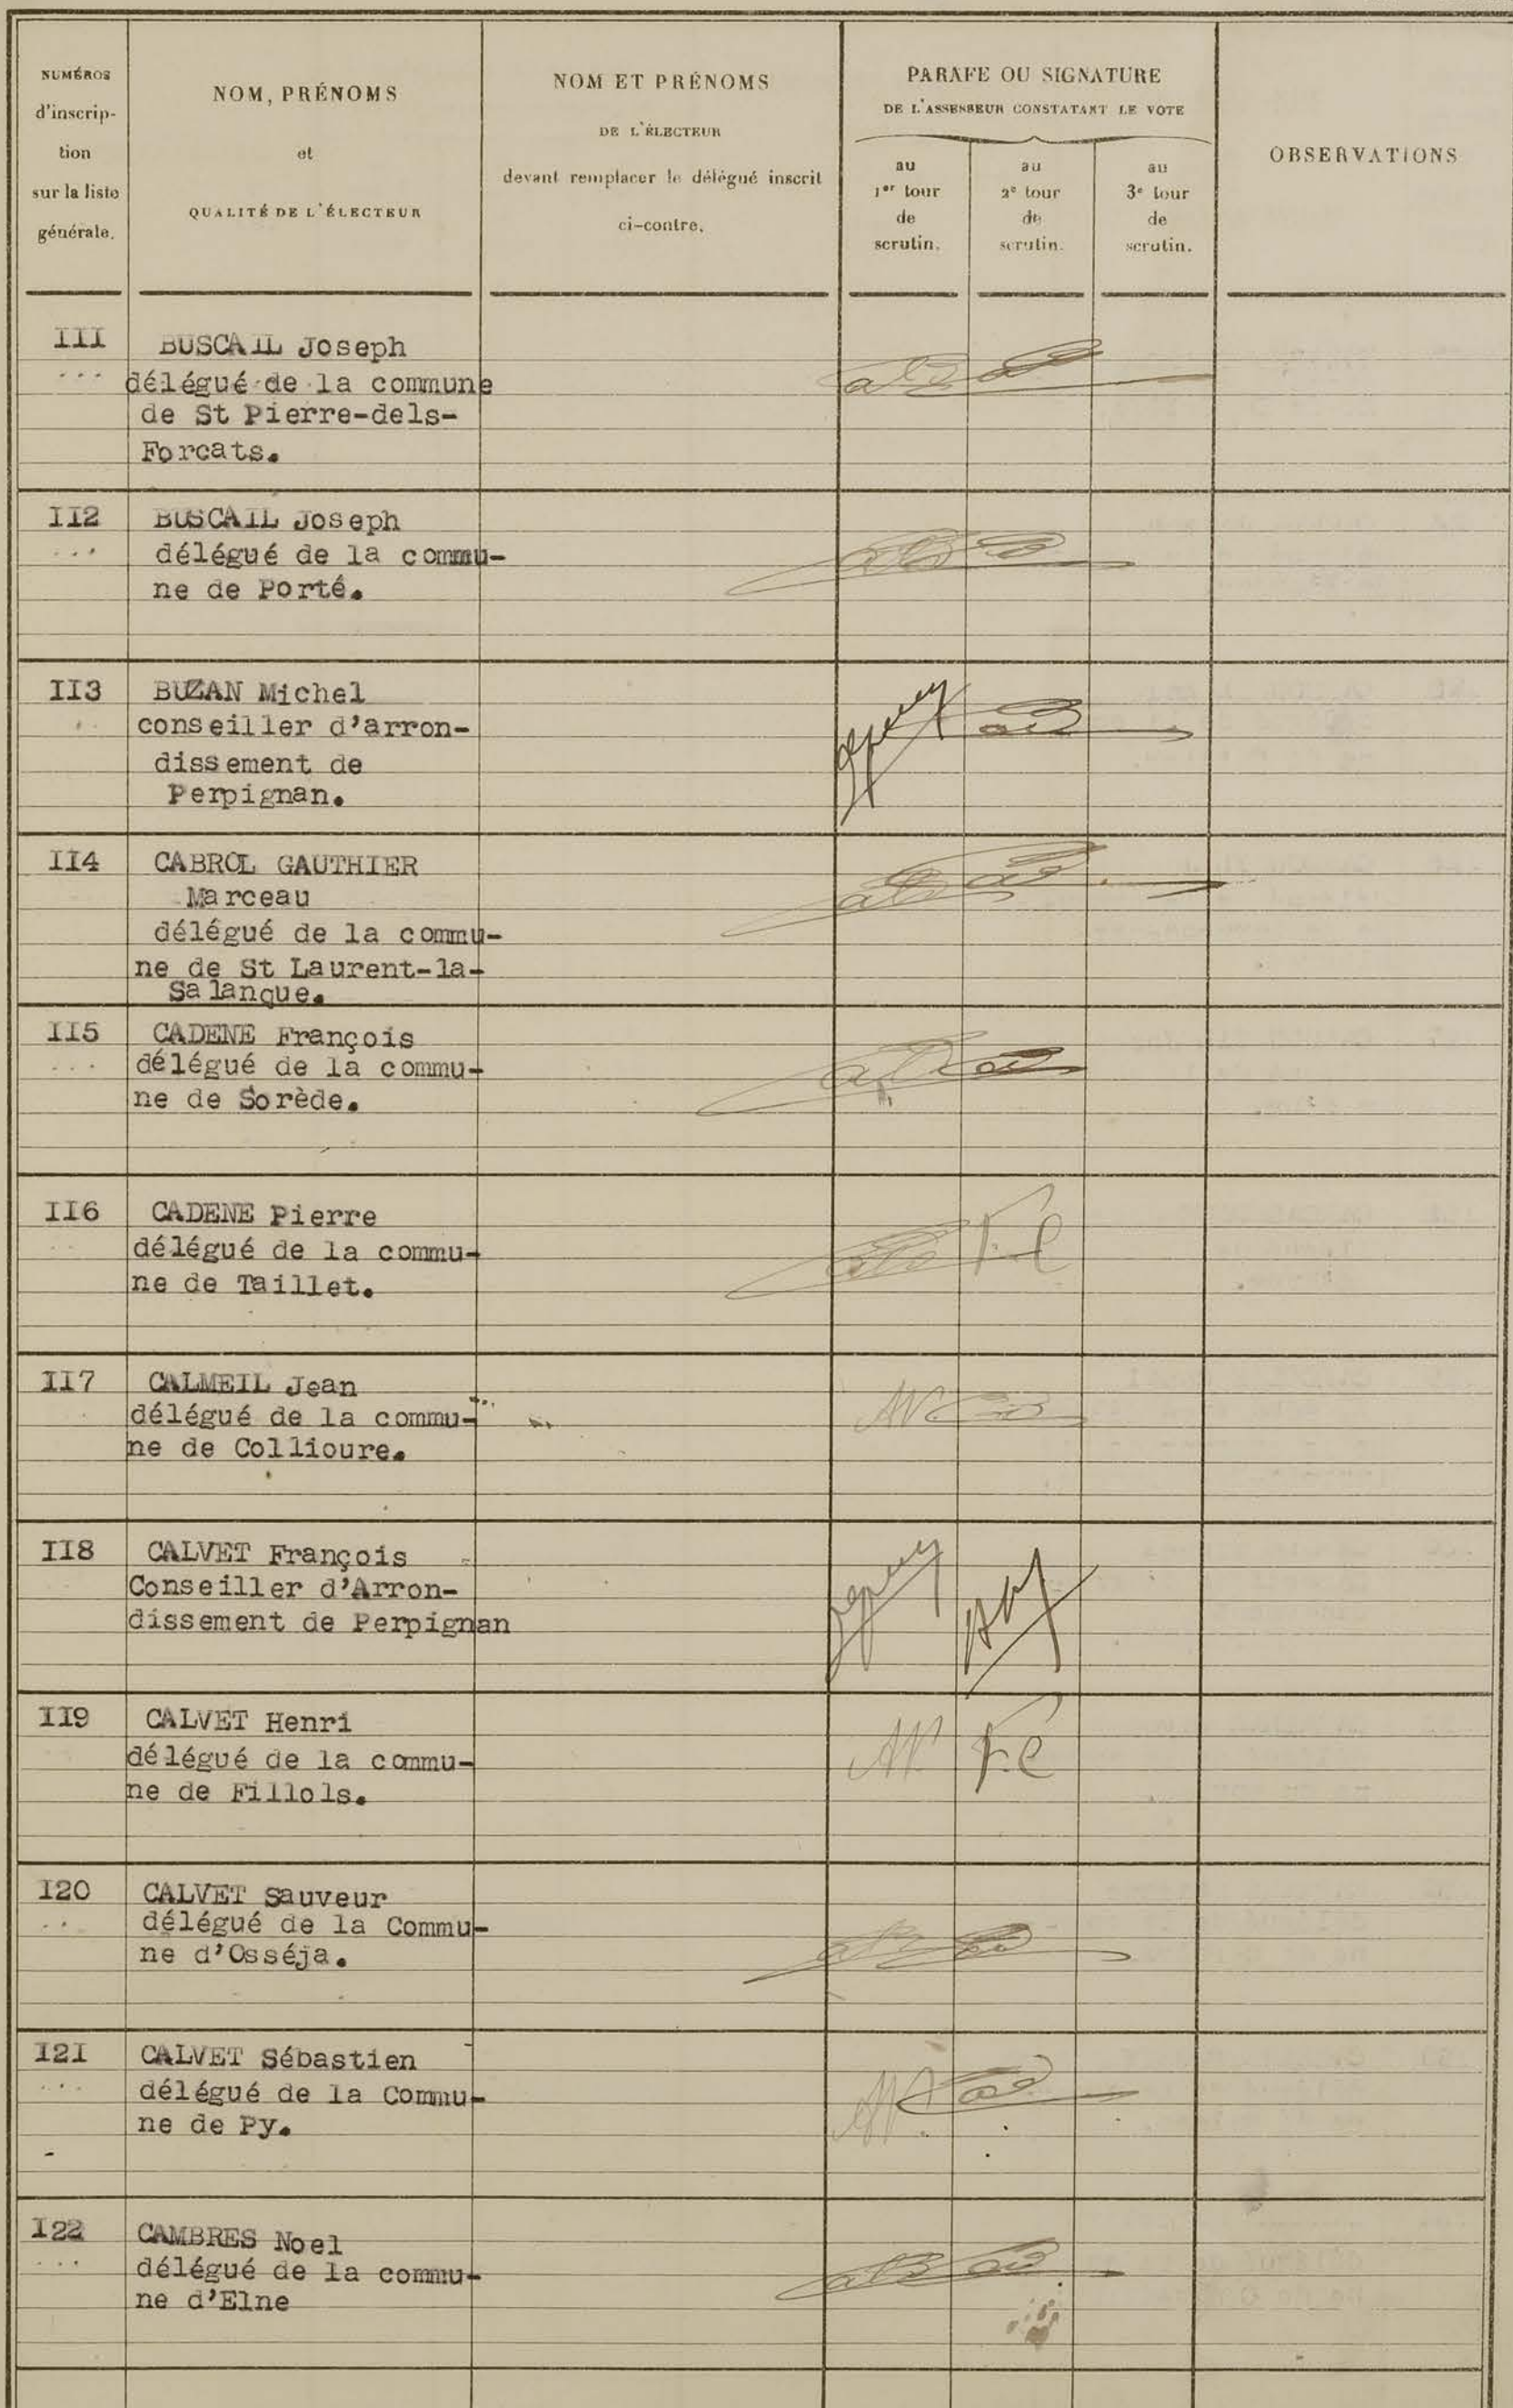 NUMÉROS
d'inscrip-
tion
sur la liste
générale.
NOM, PRÉNOMS
et
QUALITÉ DE L'ÉLECTEUR
NOM ET PRÉNOMS
DE L'ÉLECTEUR
devant remplacer le délégué inscrit
ci-contre.
PARAFE OU SIGNATURE
DE L'ASSESSEUR CONSTATANT LE VOTE
au
1er tour
de
scrutin.
au
2e tour
de
scrutin.
au
3e tour
de
scrutin.
OBSERVATIONS
III
BUSCAIL Joseph
délégué de la commune
de St Pierre-dels-
Forcats.
II2
BUSCAIL Joseph
délégué de la commu-
ne de Porté.
II3
BUZAN Michel
conseiller d'arron-
dissement de
Perpignan.
II4
CABROL GAUTHIER
Marceau
délégué de la commu-
ne de St Laurent-la-
Salanque.
II5
CADENE François
délégué de la commu-
ne de Sorède.
II6
CADENE Pierre
délégué de la commu-
ne de Taillet.
II7
CALMEIL Jean
délégué de la commu-
ne de Collioure.
II8
CALVET François
Conseiller d'Arron-
dissement de Perpignan
II9
CALVET Henri
délégué de la commu-
ne de Fillols.
I20
CALVET Sauveur
délégué de la Commu-
ne d'Osséja.
I2I
CALVET Sébastien
délégué de la Commu-
ne de Py.
I22
CAMBRES Noel
délégué de la commu-
ne d'Elne